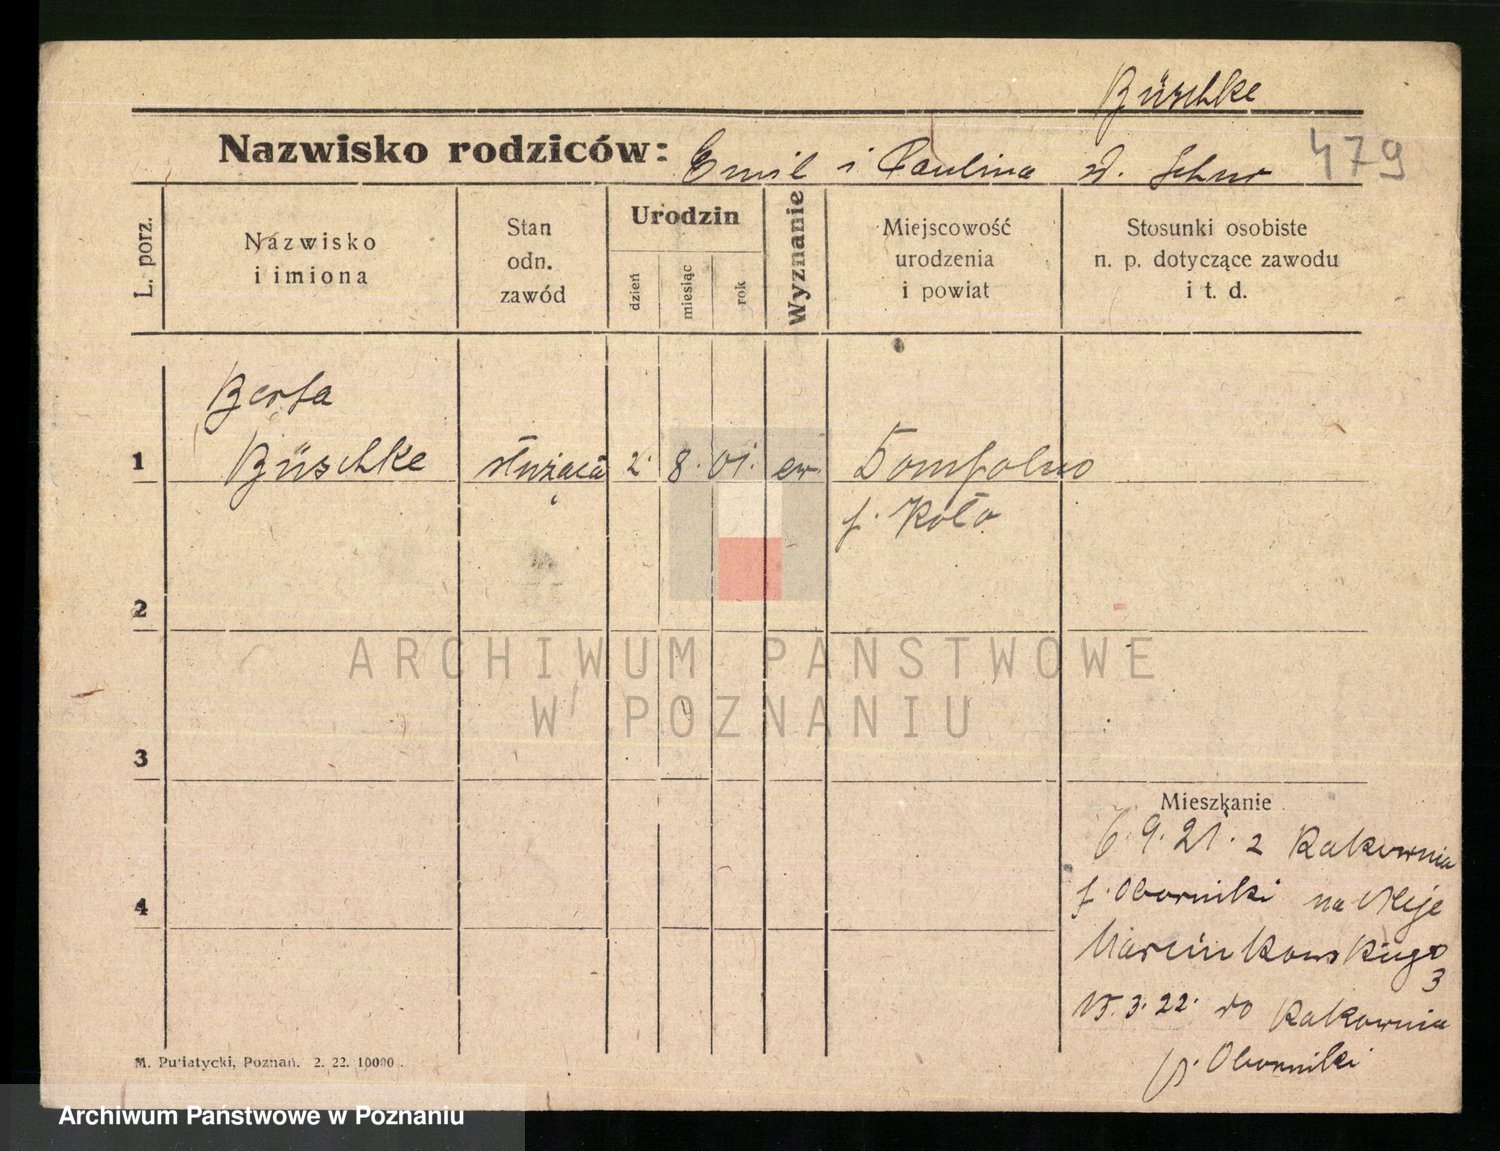 Büschke
Nazwisko rodziców: Emil i Paulina zd. Schur 479
L. porz.
Nazwisko
i imiona
Stan
odn.
zawód
Urodzin
dzień
miesiąc
rok
Wyznanie
Miejscowość
urodzenia
i powiat
Stosunki osobiste
n. p. dotyczące zawodu
i t. d.
Berta
1 Büschke służąca 2. 8. 01. ew. Dompolno
p. Koło
2
ARCHIWUM PAŃSTWOWE
W POZNANIU
3
Mieszkanie
6. 9. 21. z Rakownia
4 p. Oborniki na Aleje
Marcinkowskiego
3
15. 3. 22. do Rakownia
p. Oborniki
M. Putiatycki, Poznań. 2. 22. 10000.
Archiwum Państwowe w Poznaniu